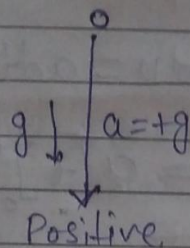 O
g a=+g
Positive